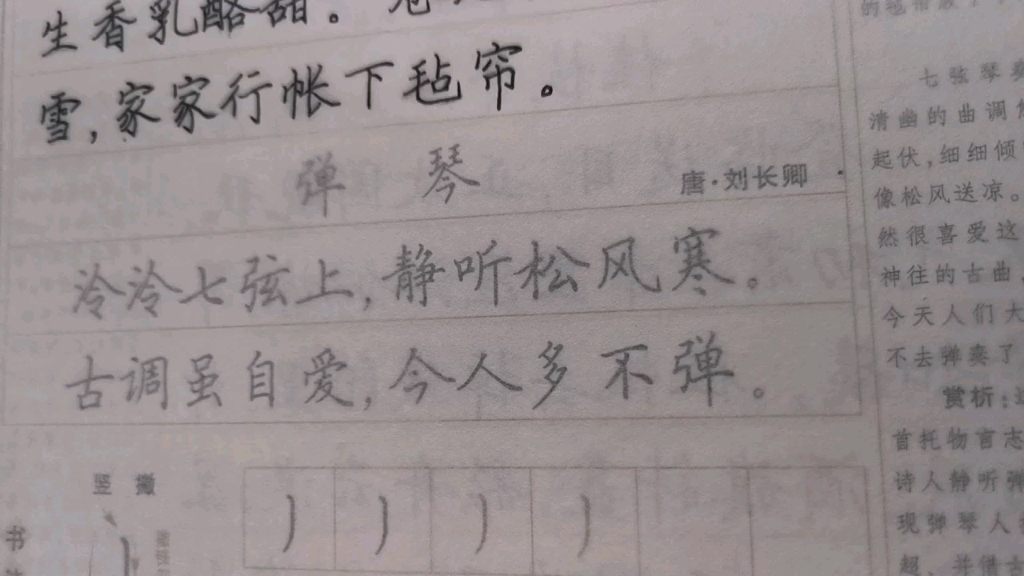 生香乳酪甜。
雪,家家行帐下毡帘。
弹 琴
唐·刘长卿
泠泠七弦上,静听松风寒。
古调虽自爱,今人多不弹。
竖 撇
书
七弦琴
清幽的曲调
起伏,细细倾
像松风送凉。
然很喜爱这
神往的古曲
今天人们大
不去弹奏了
赏析:
首托物言志
诗人静听弹
现弹琴人
超,并借古